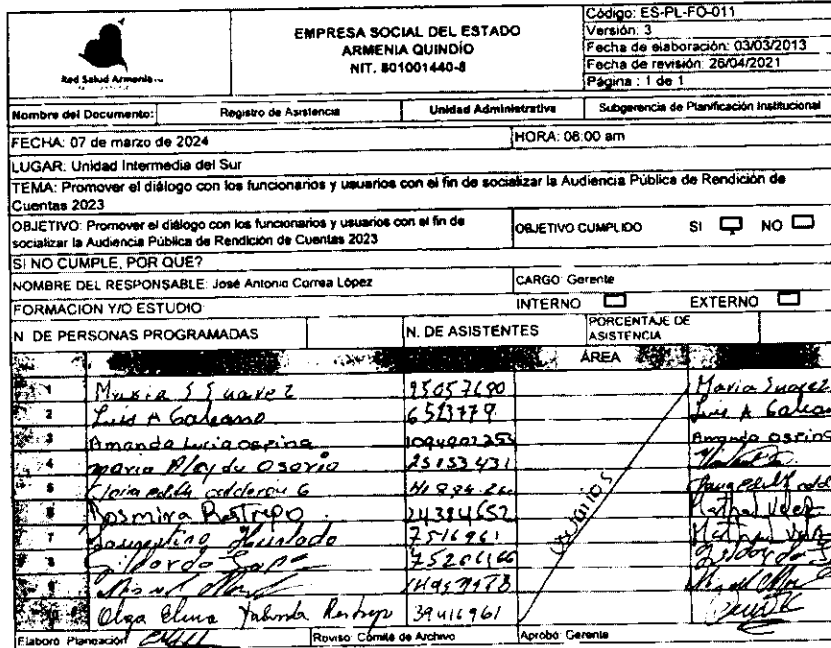 Red Salud Armenia
EMPRESA SOCIAL DEL ESTADO
ARMENIA QUINDÍO
NIT. 801001440-8
Código: ES-PL-FO-011
Versión: 3
Fecha de elaboración: 03/03/2013
Fecha de revisión: 26/04/2021
Página : 1 de 1
Nombre del Documento: Registro de Asistencia Unidad Administrativa Subgerencia de Planificación Institucional
FECHA: 07 de marzo de 2024 HORA: 08:00 am
LUGAR: Unidad Intermedia del Sur
TEMA: Promover el diálogo con los funcionarios y usuarios con el fin de socializar la Audiencia Pública de Rendición de
Cuentas 2023
OBJETIVO: Promover el diálogo con los funcionarios y usuarios con el fin de
socializar la Audiencia Pública de Rendición de Cuentas 2023
OBJETIVO CUMPLIDO SI NO
SI NO CUMPLE, POR QUE?
NOMBRE DEL RESPONSABLE: José Antonio Correa López CARGO: Gerente
FORMACION Y/O ESTUDIO INTERNO EXTERNO
N. DE PERSONAS PROGRAMADAS N. DE ASISTENTES PORCENTAJE DE
ASISTENCIA
ÁREA
1 Suarez Maria Suarez
2 Luis A Galeano 6523779 Luis A
3 Amanda Lucia ospina Amanda ospina
4 maria Osorio 25153431
5 calderon G
6 Rosmira Restrepo 24384652
7 Hurtado 7516961
8 Gildardo
9
10 Olga Elena Restrepo 39416961
Usuarios
Elaboró: Planeación Revisó: Comité de Archivo Aprobó: Gerente